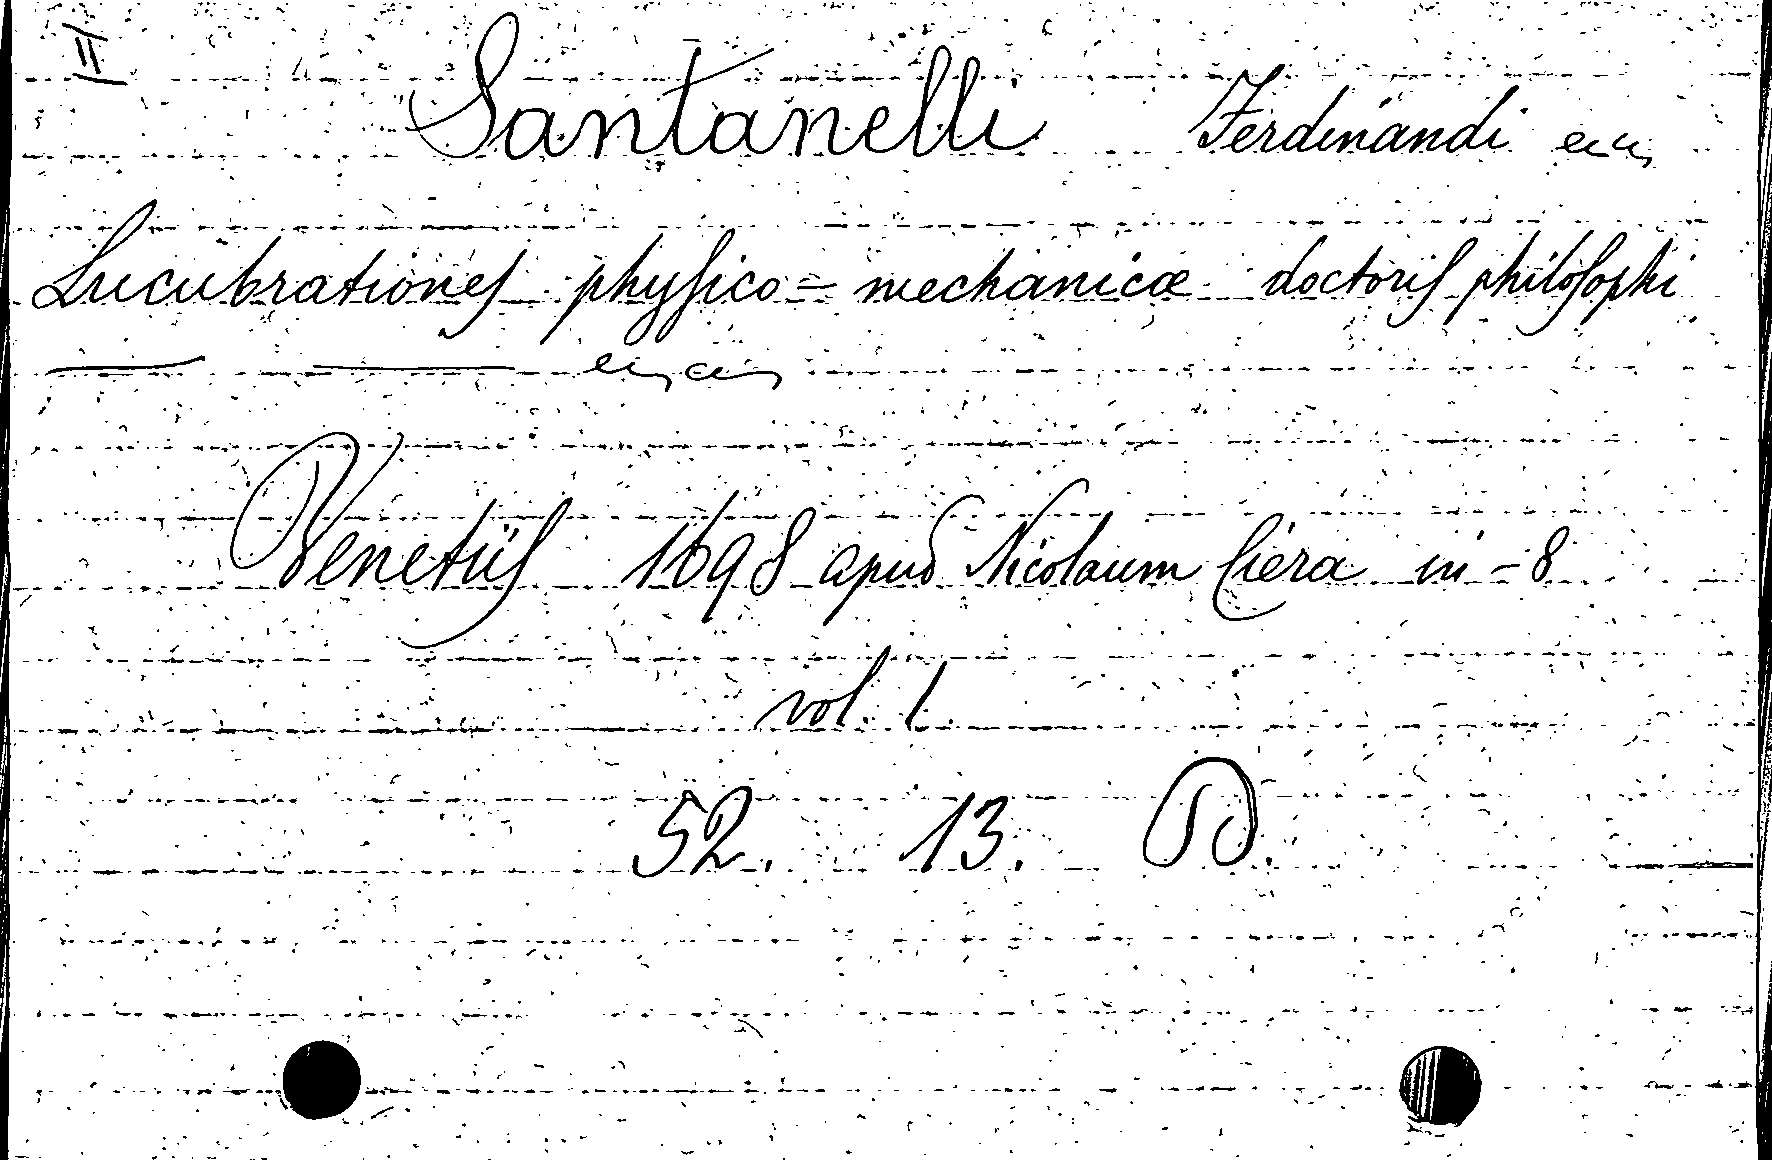 II
Santanelli Ferdinandi
Lucubrationes physico=mechanicæ doctoris philosophi
Venetiis 1698 apud Nicolaum Ciera in-8
vol. 1.
52. 13. D.